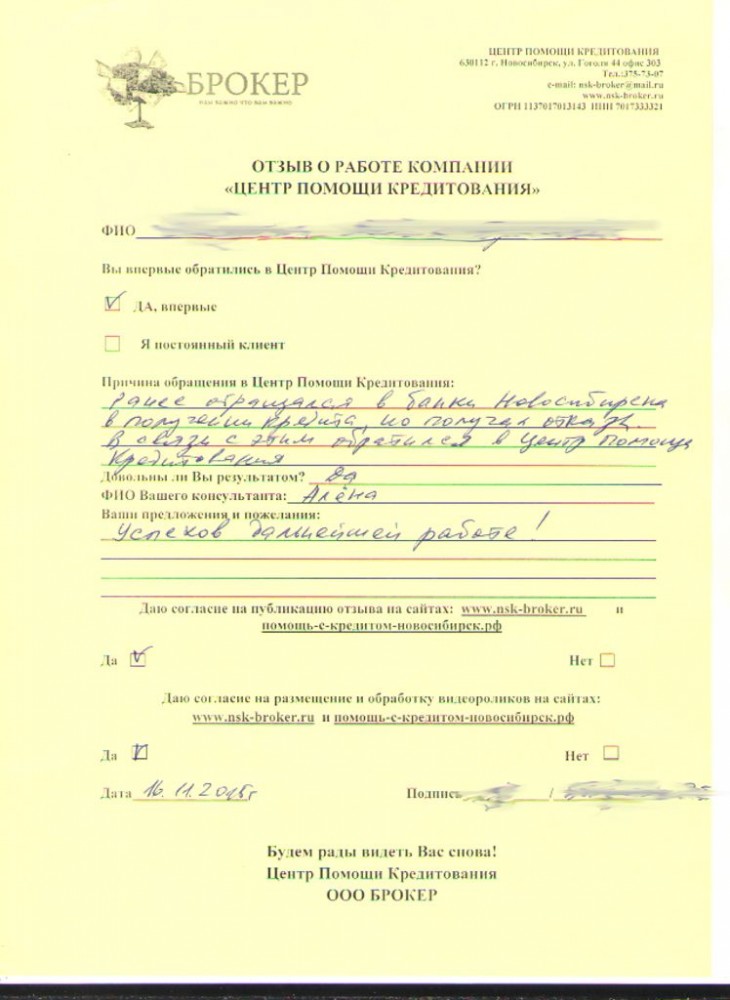 БРОКЕР
НАМ ВАЖНО ЧТО ВАМ ВАЖНО
ЦЕНТР ПОМОЩИ КРЕДИТОВАНИЯ
630112 г. Новосибирск, ул. Гоголя 44 офис 303
Тел.:375-73-07
e-mail: nsk-broker@mail.ru
www.nsk-broker.ru
ОГРН 1137017013143 ИНН 7017333321
ОТЗЫВ О РАБОТЕ КОМПАНИИ
«ЦЕНТР ПОМОЩИ КРЕДИТОВАНИЯ»
ФИО
Вы впервые обратились в Центр Помощи Кредитования?
ДА, впервые
Я постоянный клиент
Причина обращения в Центр Помощи Кредитования:
Ранее обращался в банки Новосибирска
в получении кредита, но получал отказы.
В связи с этим обратился в Центр Помощи
Кредитования
Довольны ли Вы результатом? Да
ФИО Вашего консультанта: Алёна
Ваши предложения и пожелания:
Успехов дальнейшей работе!
Даю согласие на публикацию отзыва на сайтах: www.nsk-broker.ru и
помощь-с-кредитом-новосибирск.рф
Да Нет
Даю согласие на размещение и обработку видеороликов на сайтах:
www.nsk-broker.ru и помощь-с-кредитом-новосибирск.рф
Да Нет
Дата 16.11.2015г Подпись /
Будем рады видеть Вас снова!
Центр Помощи Кредитования
ООО БРОКЕР